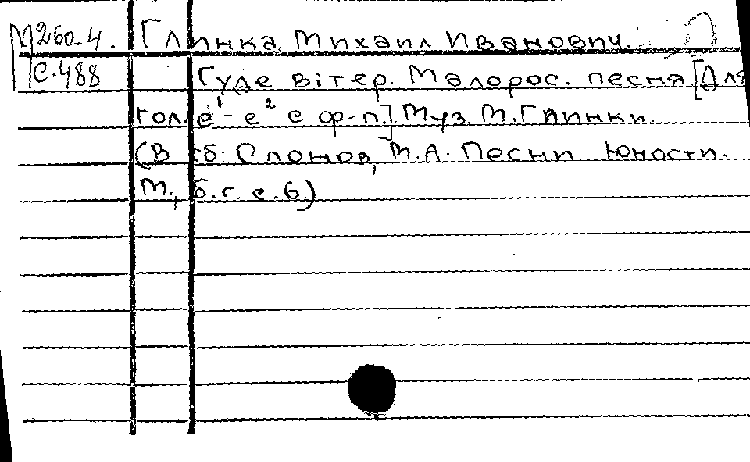 М260-4. Глинка, Михаил Иванович.
С.488 Гуде вітер. Малорос. песня [Для
гол. e¹-e² с ф-п.] Муз. М. Глинки.
(В сб. Слонов, М.А. Песни юности.
М., б.г. с.6)